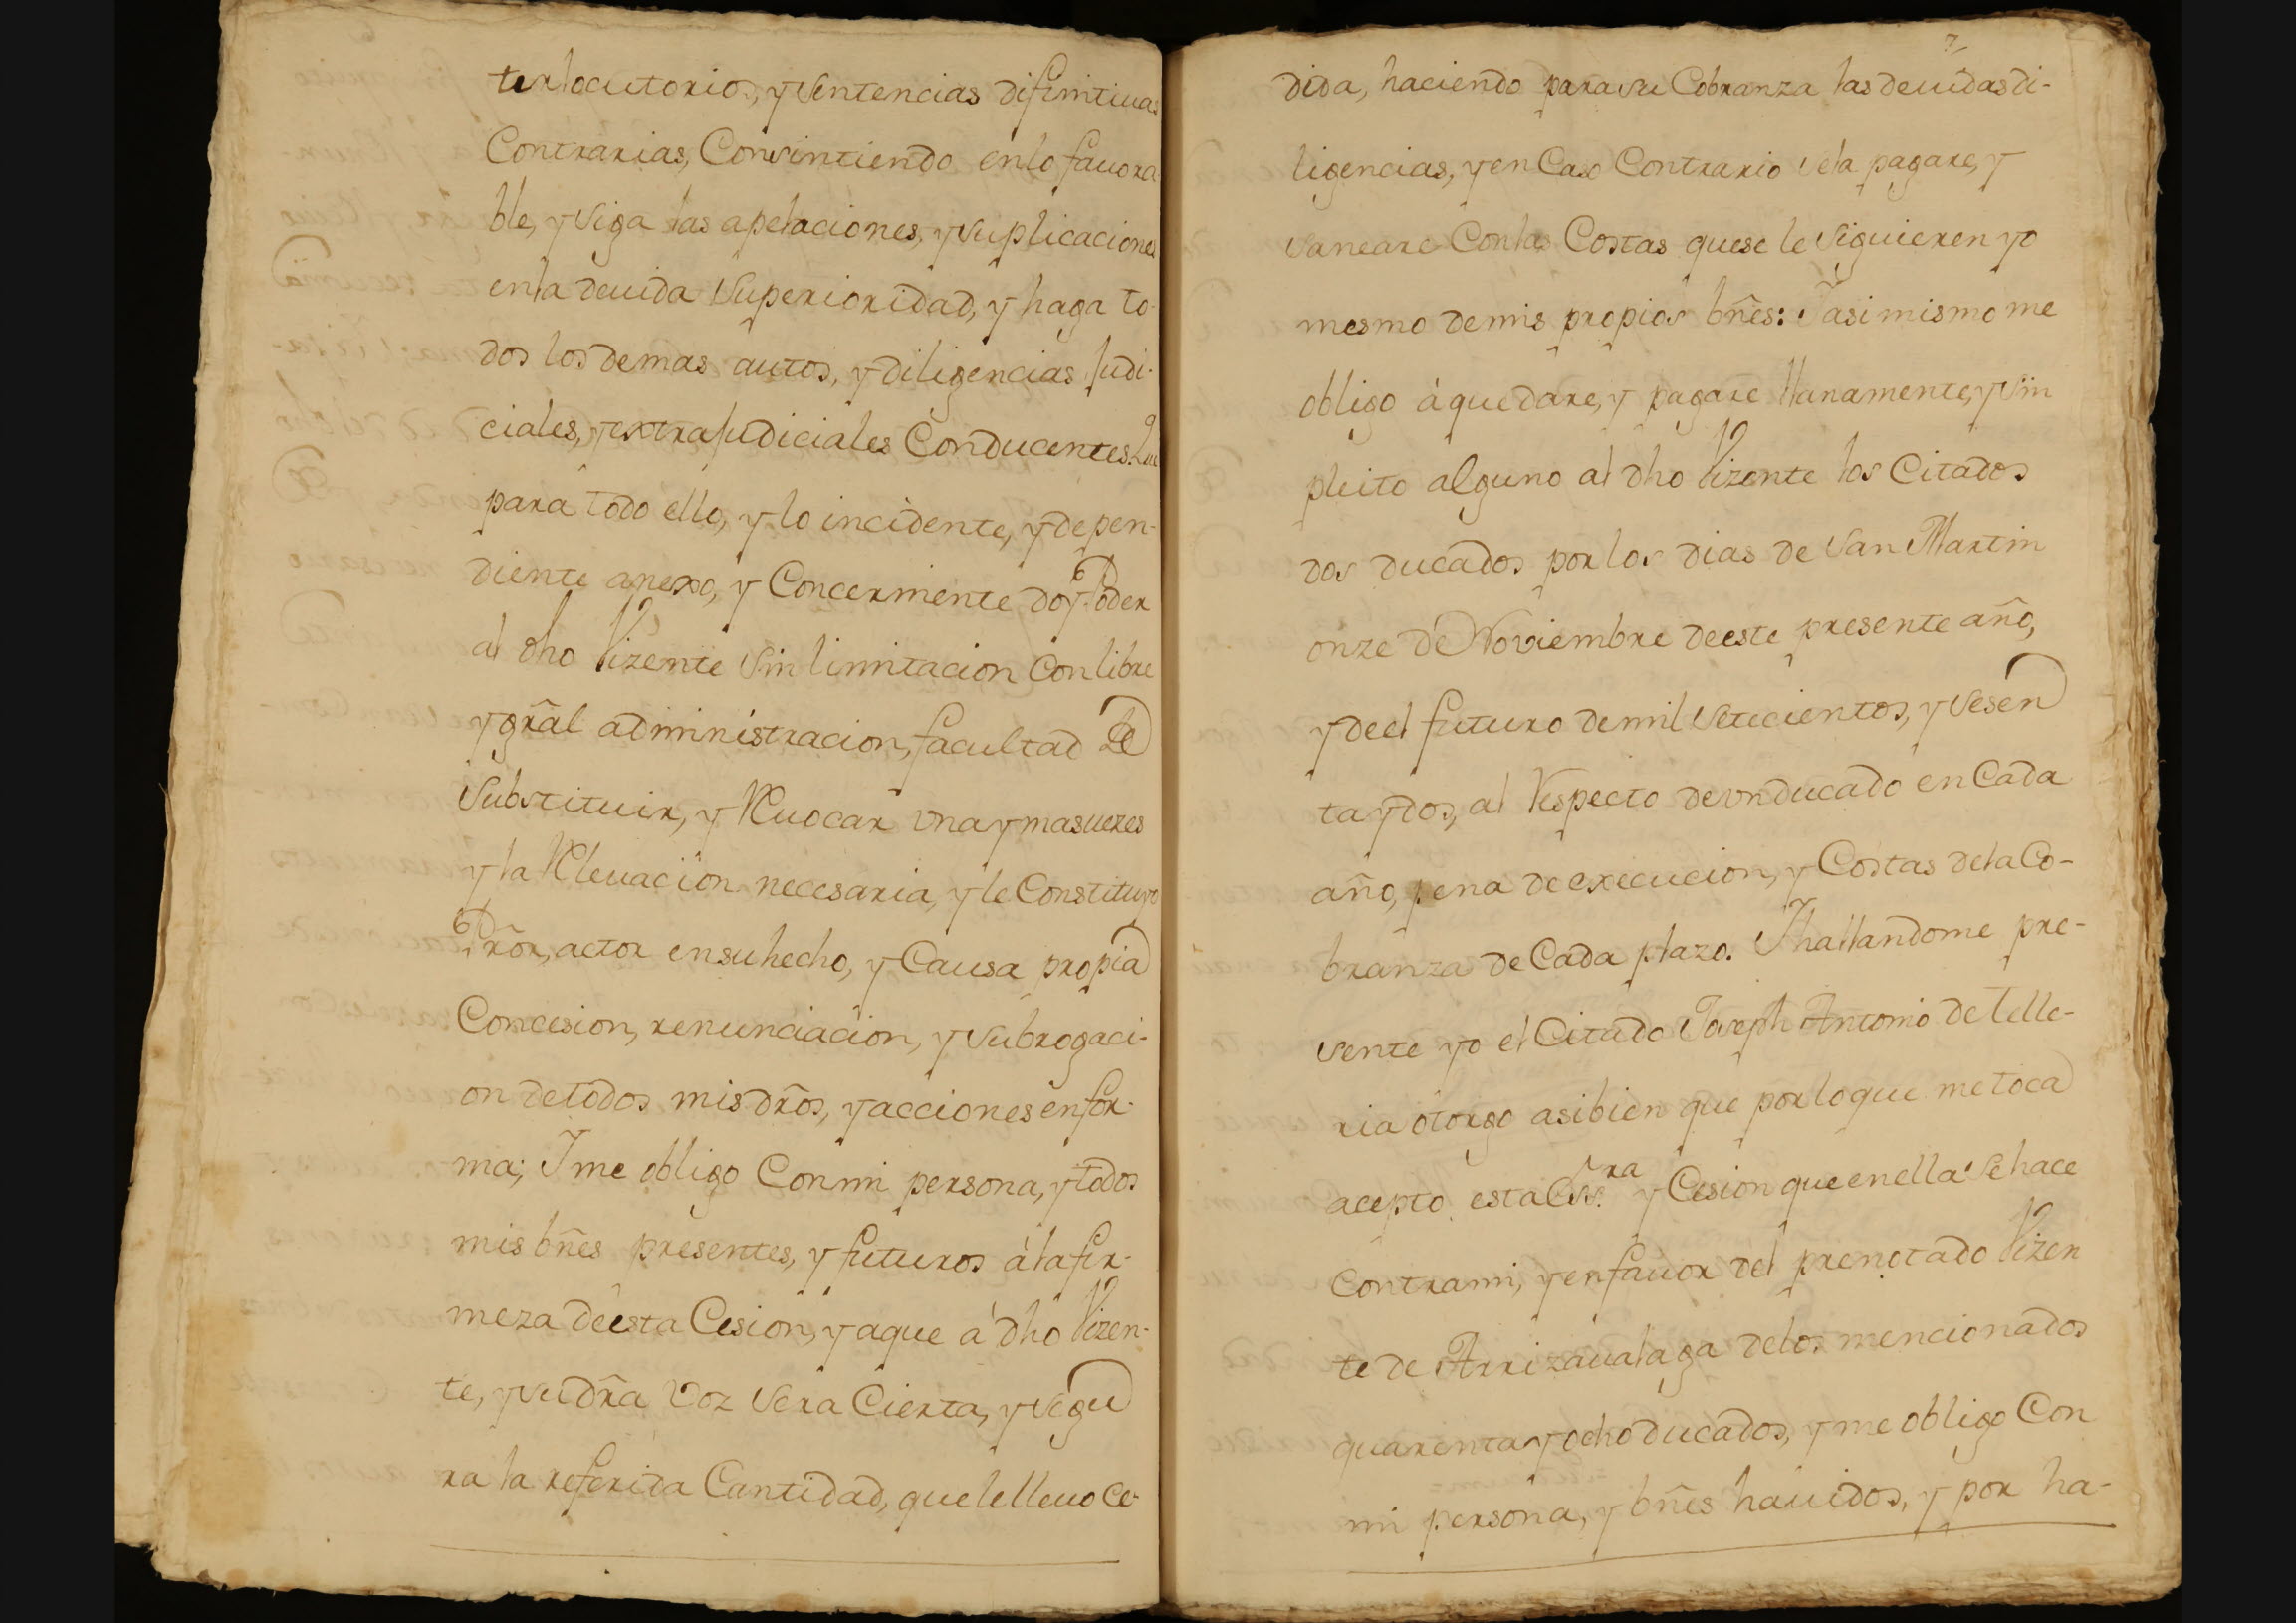 terlocutorios, y sentencias difinitiuas
Contrarias, Consintiendo enlo fauora
ble, y siga las apelaciones, y suplicaciones
enla deuida Superioridad, y haga to-
dos los demas autos, y diligencias Judi-
ciales, y extraJudiciales Conducentes. Que
para todo ello, y lo incidente, y depen-
diente anexo, y Concerniente doy Poder
al dho Vizente sin limitacion Con libre
y grãl administracion, facultad de
Substituir, y Reuocar vna y mas uezes
y la Releuacion necesaria, y le Constituyo
Prõr, actor ensu hecho, y Causa propia
Concesion, renunciacion, y subrogaci-
on de todos mis drõs, y acciones en for-
ma; Y me obligo Con mi persona, y todos
mis bñes presentes, y futuros à la fir-
meza deesta Cesion, y aque à dho Vizen-
te, y su dr̃a Voz sera Cierta, y segu
ra la referida Cantidad, que le lleuo Ce-
7
dida, haciendo para su Cobranza las deuidas di-
ligencias, y en Caso Contrario sela pagare, y
saneare Conlas Costas quese le siguieren yo
mesmo de mis propios bñes: Y asi mismo me
obligo à que dare, y pagare llanamente, y sin
pleito alguno al dho Vizente los Citados
dos ducados por los dias de San Martin
onze de Noviembre deeste presente año,
y deel futuro demil setecientos, y sesen
ta y dos, al Respecto de vn ducado en Cada
año, pena de execucion, y Costas dela Co-
branza de Cada plazo. Y hallandome pre-
sente yo el Citado Joseph Antonio de Telle-
ria otorgo asibien que por lo que me toca
acepto esta Ess.ra y Cesion que enella se hace
Contra mi, y en fauor del prenotado Vizen
te de Arrizaualaga delos mencionados
quarenta y ocho ducados, y me obligo Con
mi persona, y bñes hauidos, y por ha-